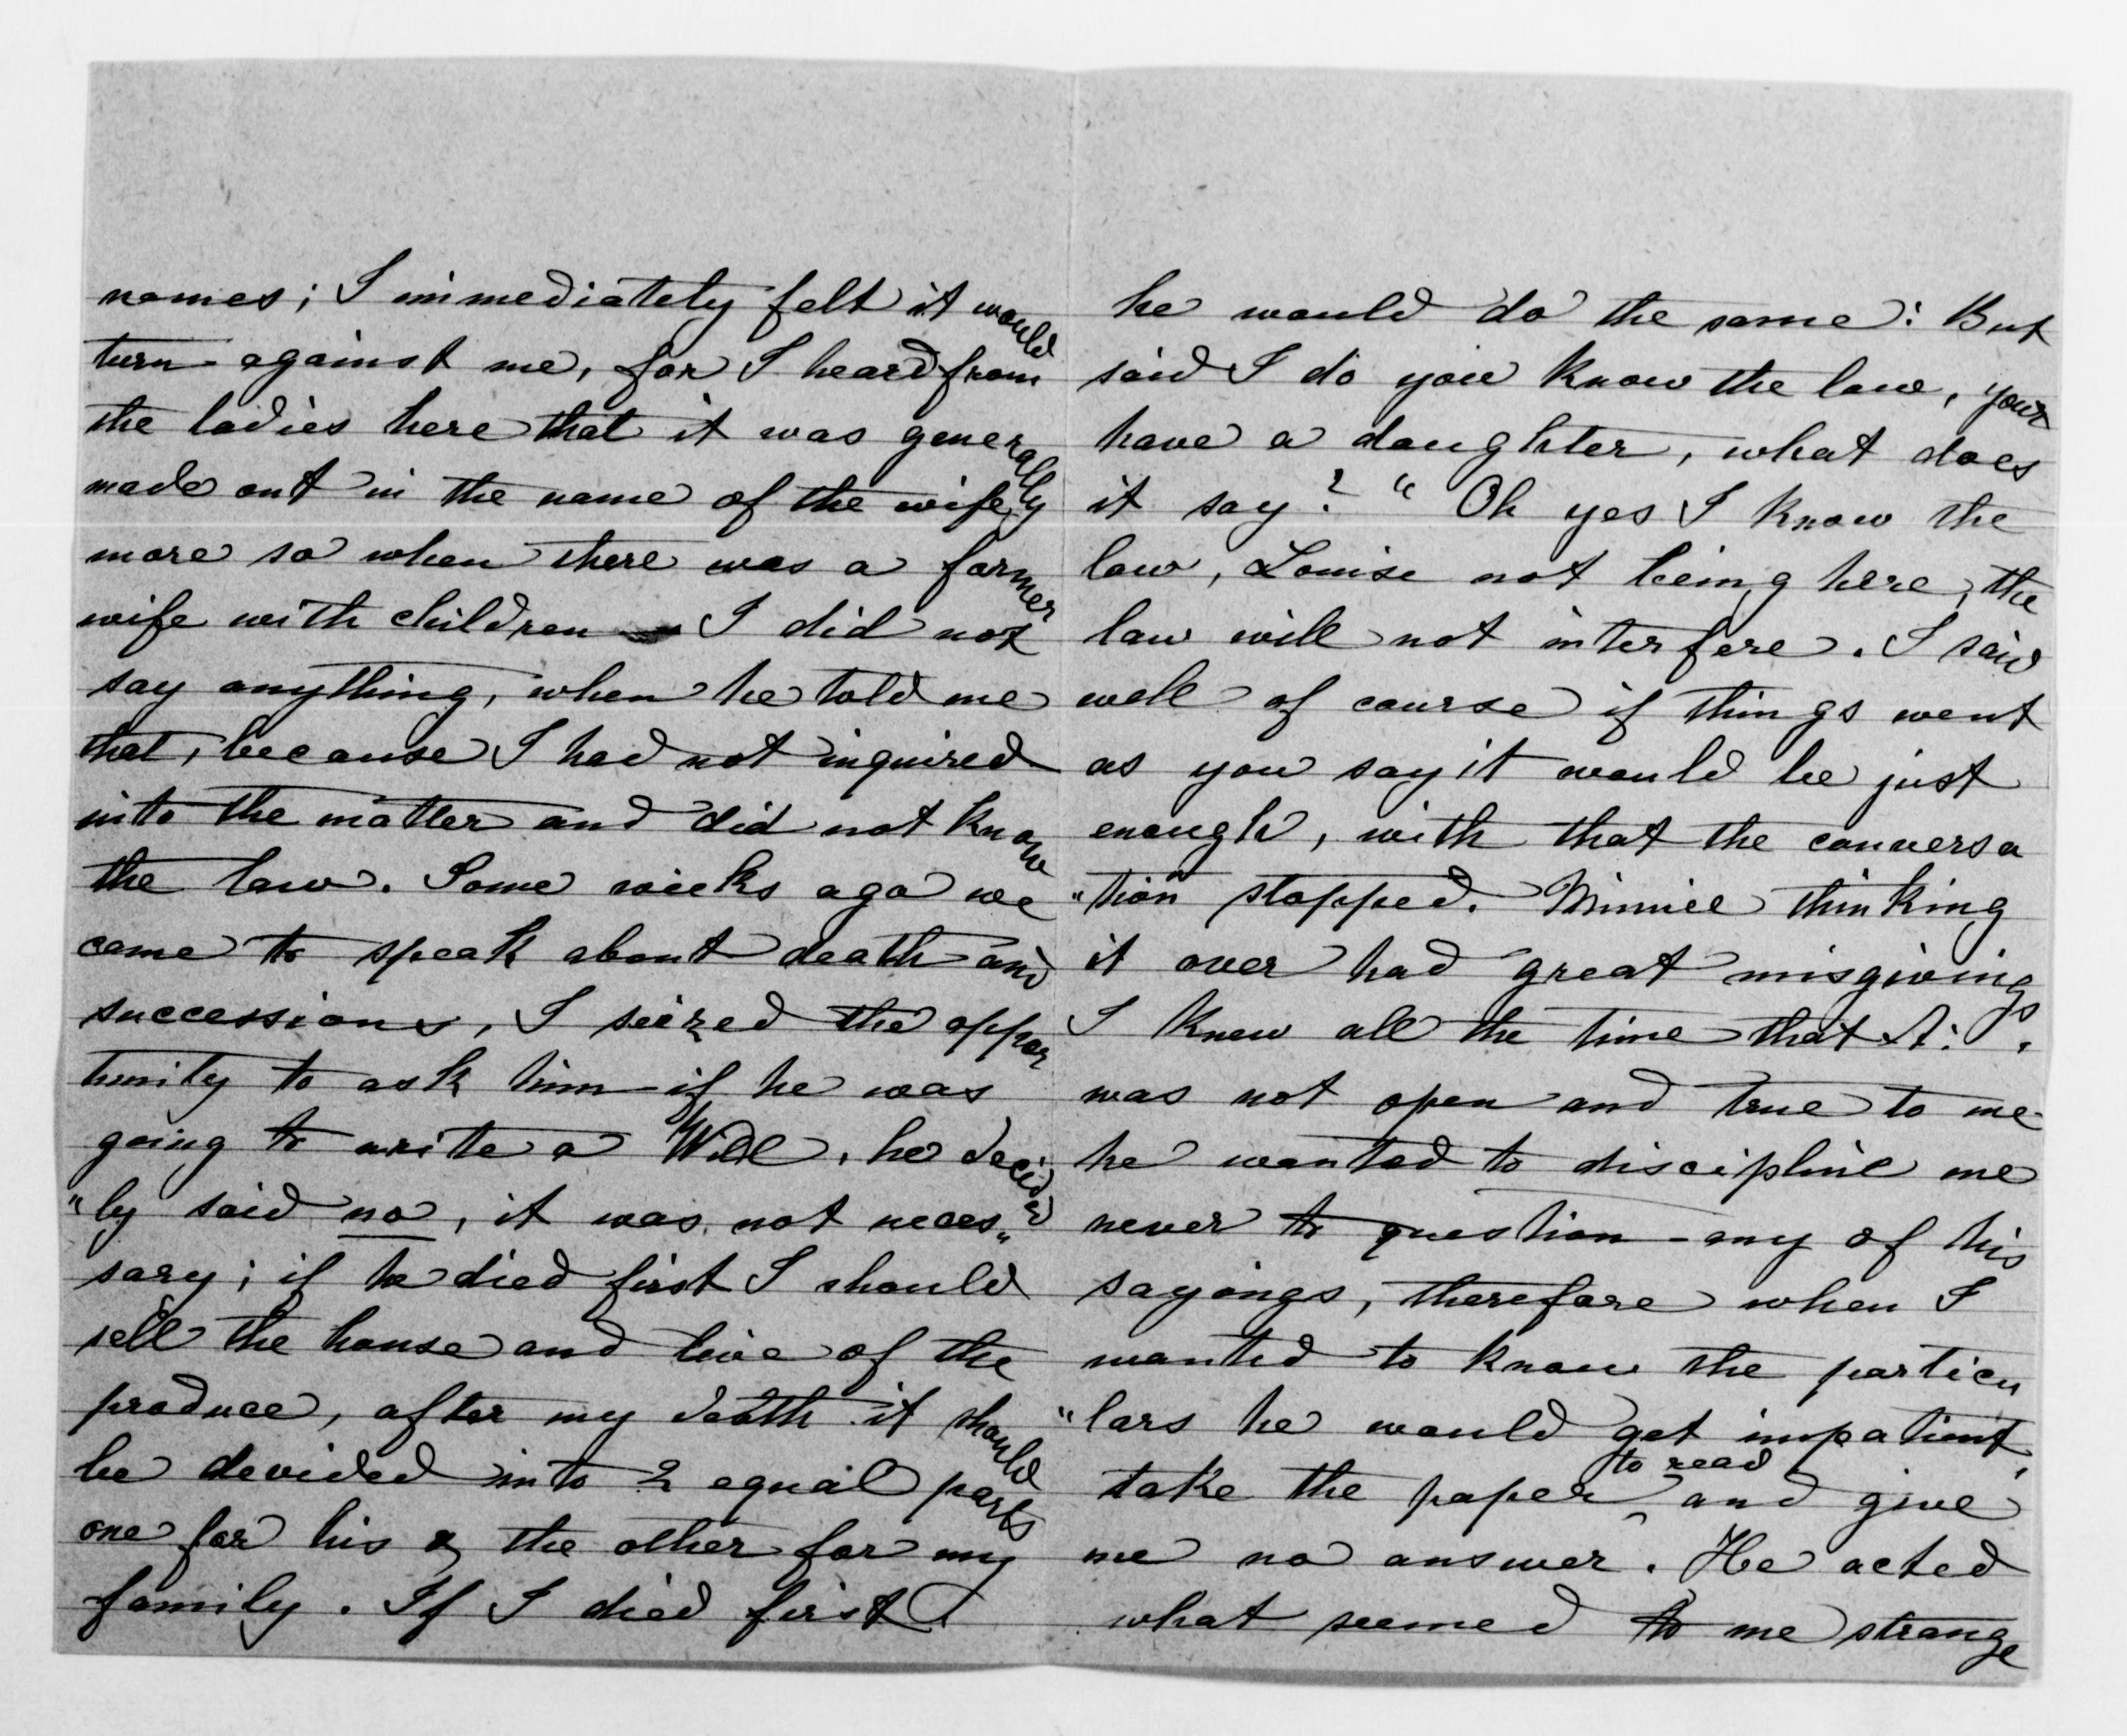 names; I immediately felt it would
turn against me, for I heard from
the ladies here that it was generally
made out in the name of the wife,
more so when there was a former
wife with children — I did not
say anything, when he told me
that, because I had not inquired
into the matter and did not know
the law. Some wieks ago we
came to speak about death and
successions, I seized the oppor
tunity to ask him if he was
going to write a Will, he decided
"ly said no, it was not neces„
sary; if he died first I should
sell the house and live of the
produce, after my death it should
be devided into 2 equal parts
one for his & the other for my
family. If I died first
he would do the same: But
said I do you know the law, you
have a daughter, what does
it say? " Oh yes I know the
law, Louise not being here, the
law will not interfere. I said
well of course if things went
as you say it would be just
enough, with that the conversa
"tion stopped. Minnie thinking
it over had great misgivings
I knew all the time that A: .
was not open and true to me
he wanted to discipline me
never to question any of his
sayings, therefore when I
wanted to know the particu
"lars he would get impatient,
take the paper to read and give
me no answer. He acted
what seemed to me strange